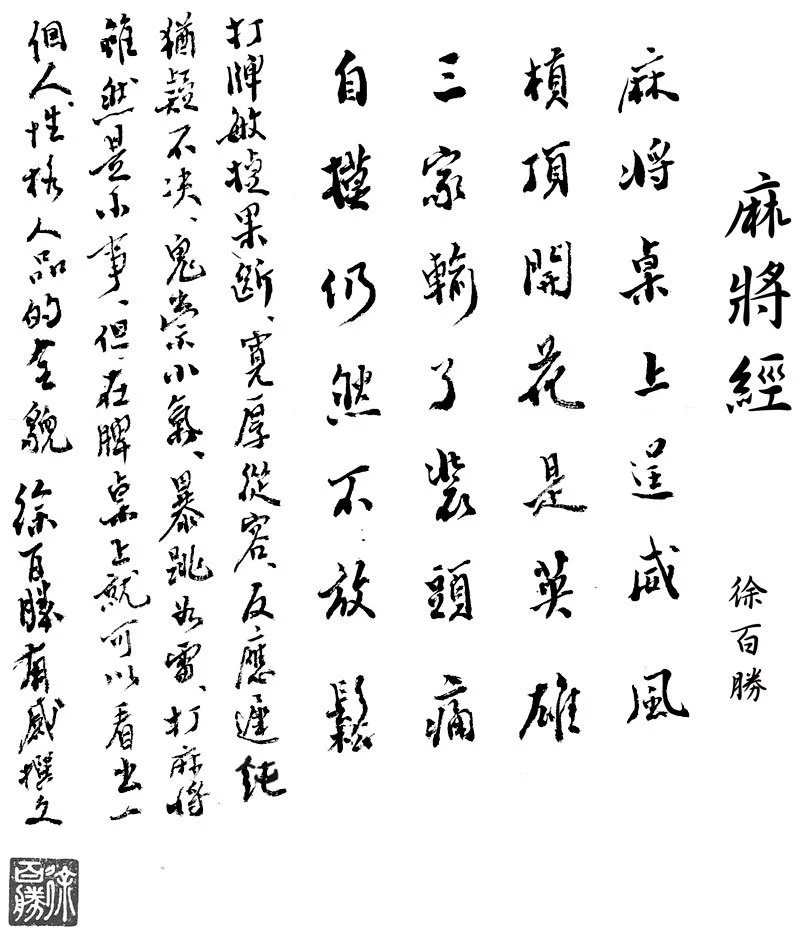 麻將經
徐百勝
麻将桌上逞威風
槓頂開花是英雄
三家輸了裝頭痛
自摸仍然不放鬆
打牌敏捷果断、寬厚從容、反應遲鈍
猶疑不决、鬼祟小氣、暴跳如雷、打麻将
雖然是小事、但在牌桌上就可以看出一
個人性格人品的全貌 徐百勝有感撰文
徐百勝